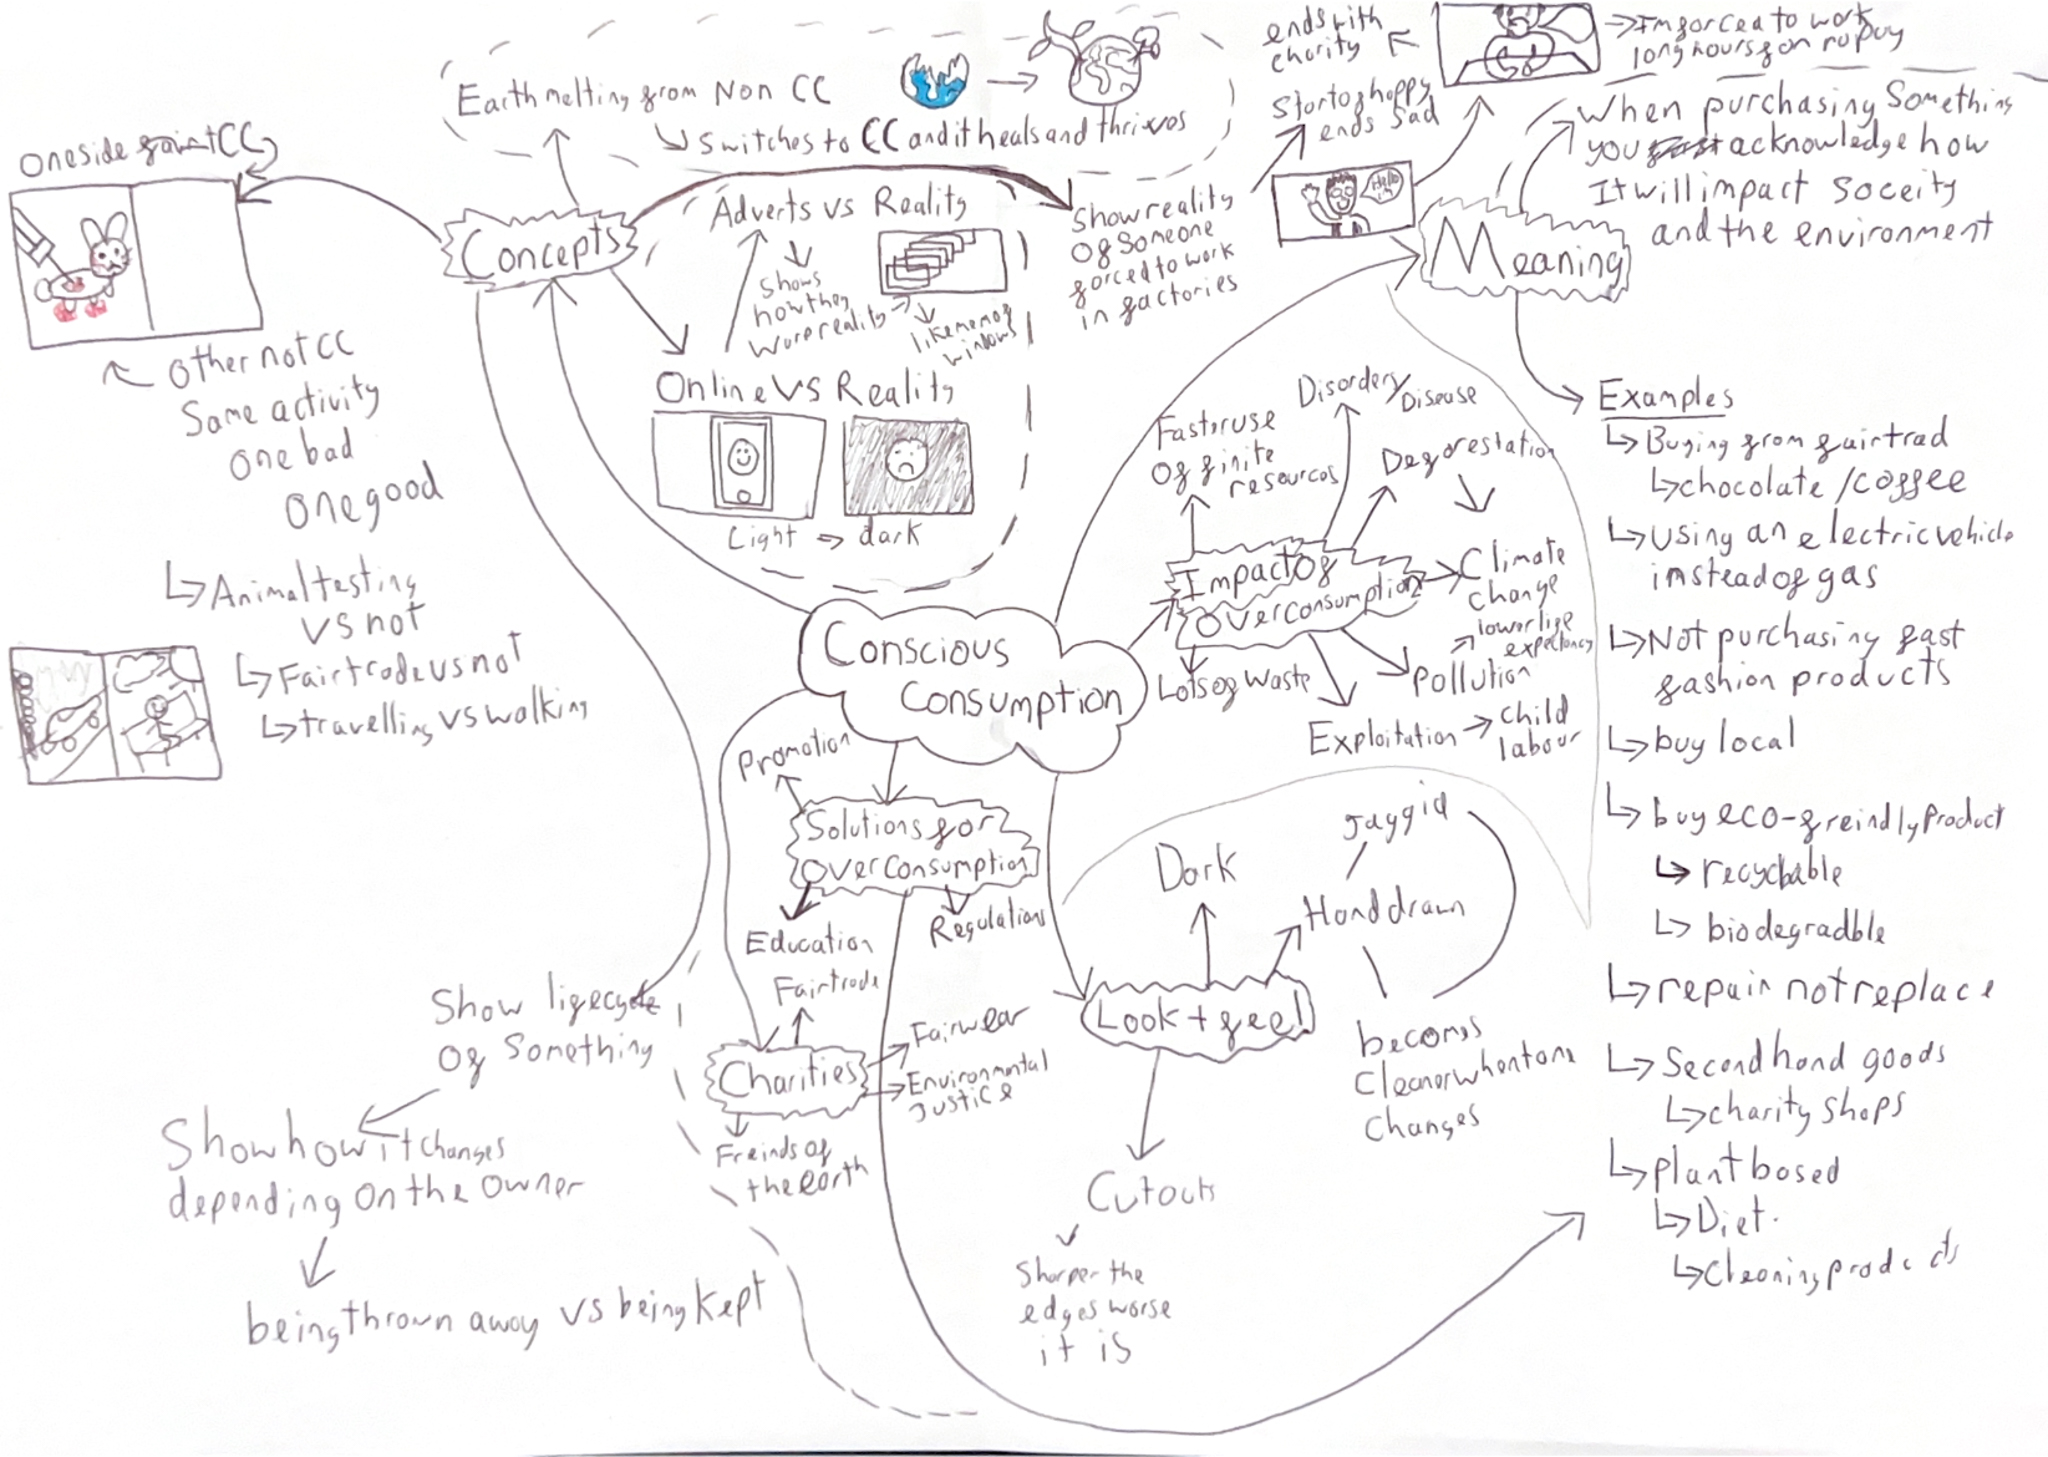 Earth melting from Non CC
Switches to CC and it heals and thrives
ends with
charity
Im forced to work
long hours for no pay
Starts of happy
ends sad
Hello
When purchasing Something
you acknowledge how
It will impact Soceity
and the environment
Meaning
one side CC
Concepts
Adverts vs Reality
Shows
how they
warp reality
like meme of
windows
Show reality
Of Someone
forced to work
in factories
Other not CC
Same activity
One bad
One good
Online VS Reality
Light
dark
Animal testing
VS not
Fairtrade vs not
travelling vs walking
Conscious
Consumption
Impact Of
Overconsumption
Faster use
Of finite
resources
Disorders/
Disease
Deforestation
Climate
change
lower life
expectancy
Pollution
Lots of waste
Exploitation
child
labour
Examples
Buying from fairtrad
chocolate/coffee
Using an electric vehicle
instead of gas
Not purchasing fast
fashion products
buy local
buy eco-freindly Product
recyclable
biodegradble
repair not replace
Second hand goods
charity shops
plant based
Diet.
Cleaning products
Promotion
Solutions for
Overconsumption
Education
Regulations
Charities
Fairtrade
Fairwear
Environmental
Justice
Freinds of
the earth
Look + feel
Dark
Hand drawn
Jaggid
becomes
Cleaner when tone
Changes
Cutouts
Sharper the
edges worse
it is
Show lifecycle
Of Something
Show how it changes
depending on the owner
being thrown away vs being kept